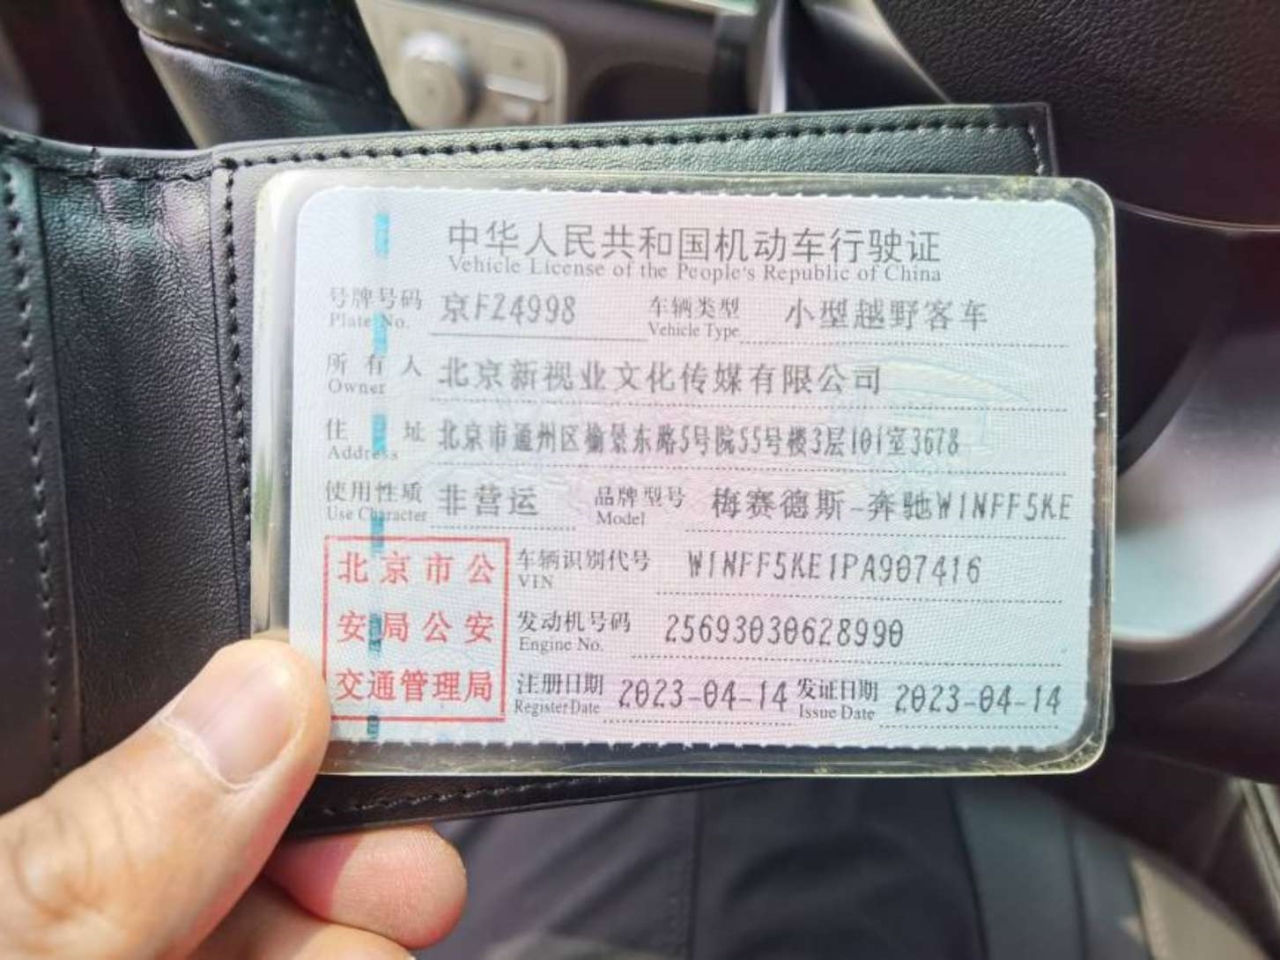 中华人民共和国机动车行驶证
Vehicle License of the People's Republic of China
号牌号码 京FZ4998 车辆类型 小型越野客车
Plate No. Vehicle Type
所有人 北京新视业文化传媒有限公司
Owner
住址 北京市通州区榆景东路5号院55号楼3层101室3678
Address
使用性质 非营运 品牌型号 梅赛德斯-奔驰W1NFF5KE
Use Character Model
北京市公安局公安交通管理局
车辆识别代号 W1NFF5KE1PA907416
VIN
发动机号码 25693030628990
Engine No.
注册日期 2023-04-14 发证日期 2023-04-14
Register Date Issue Date